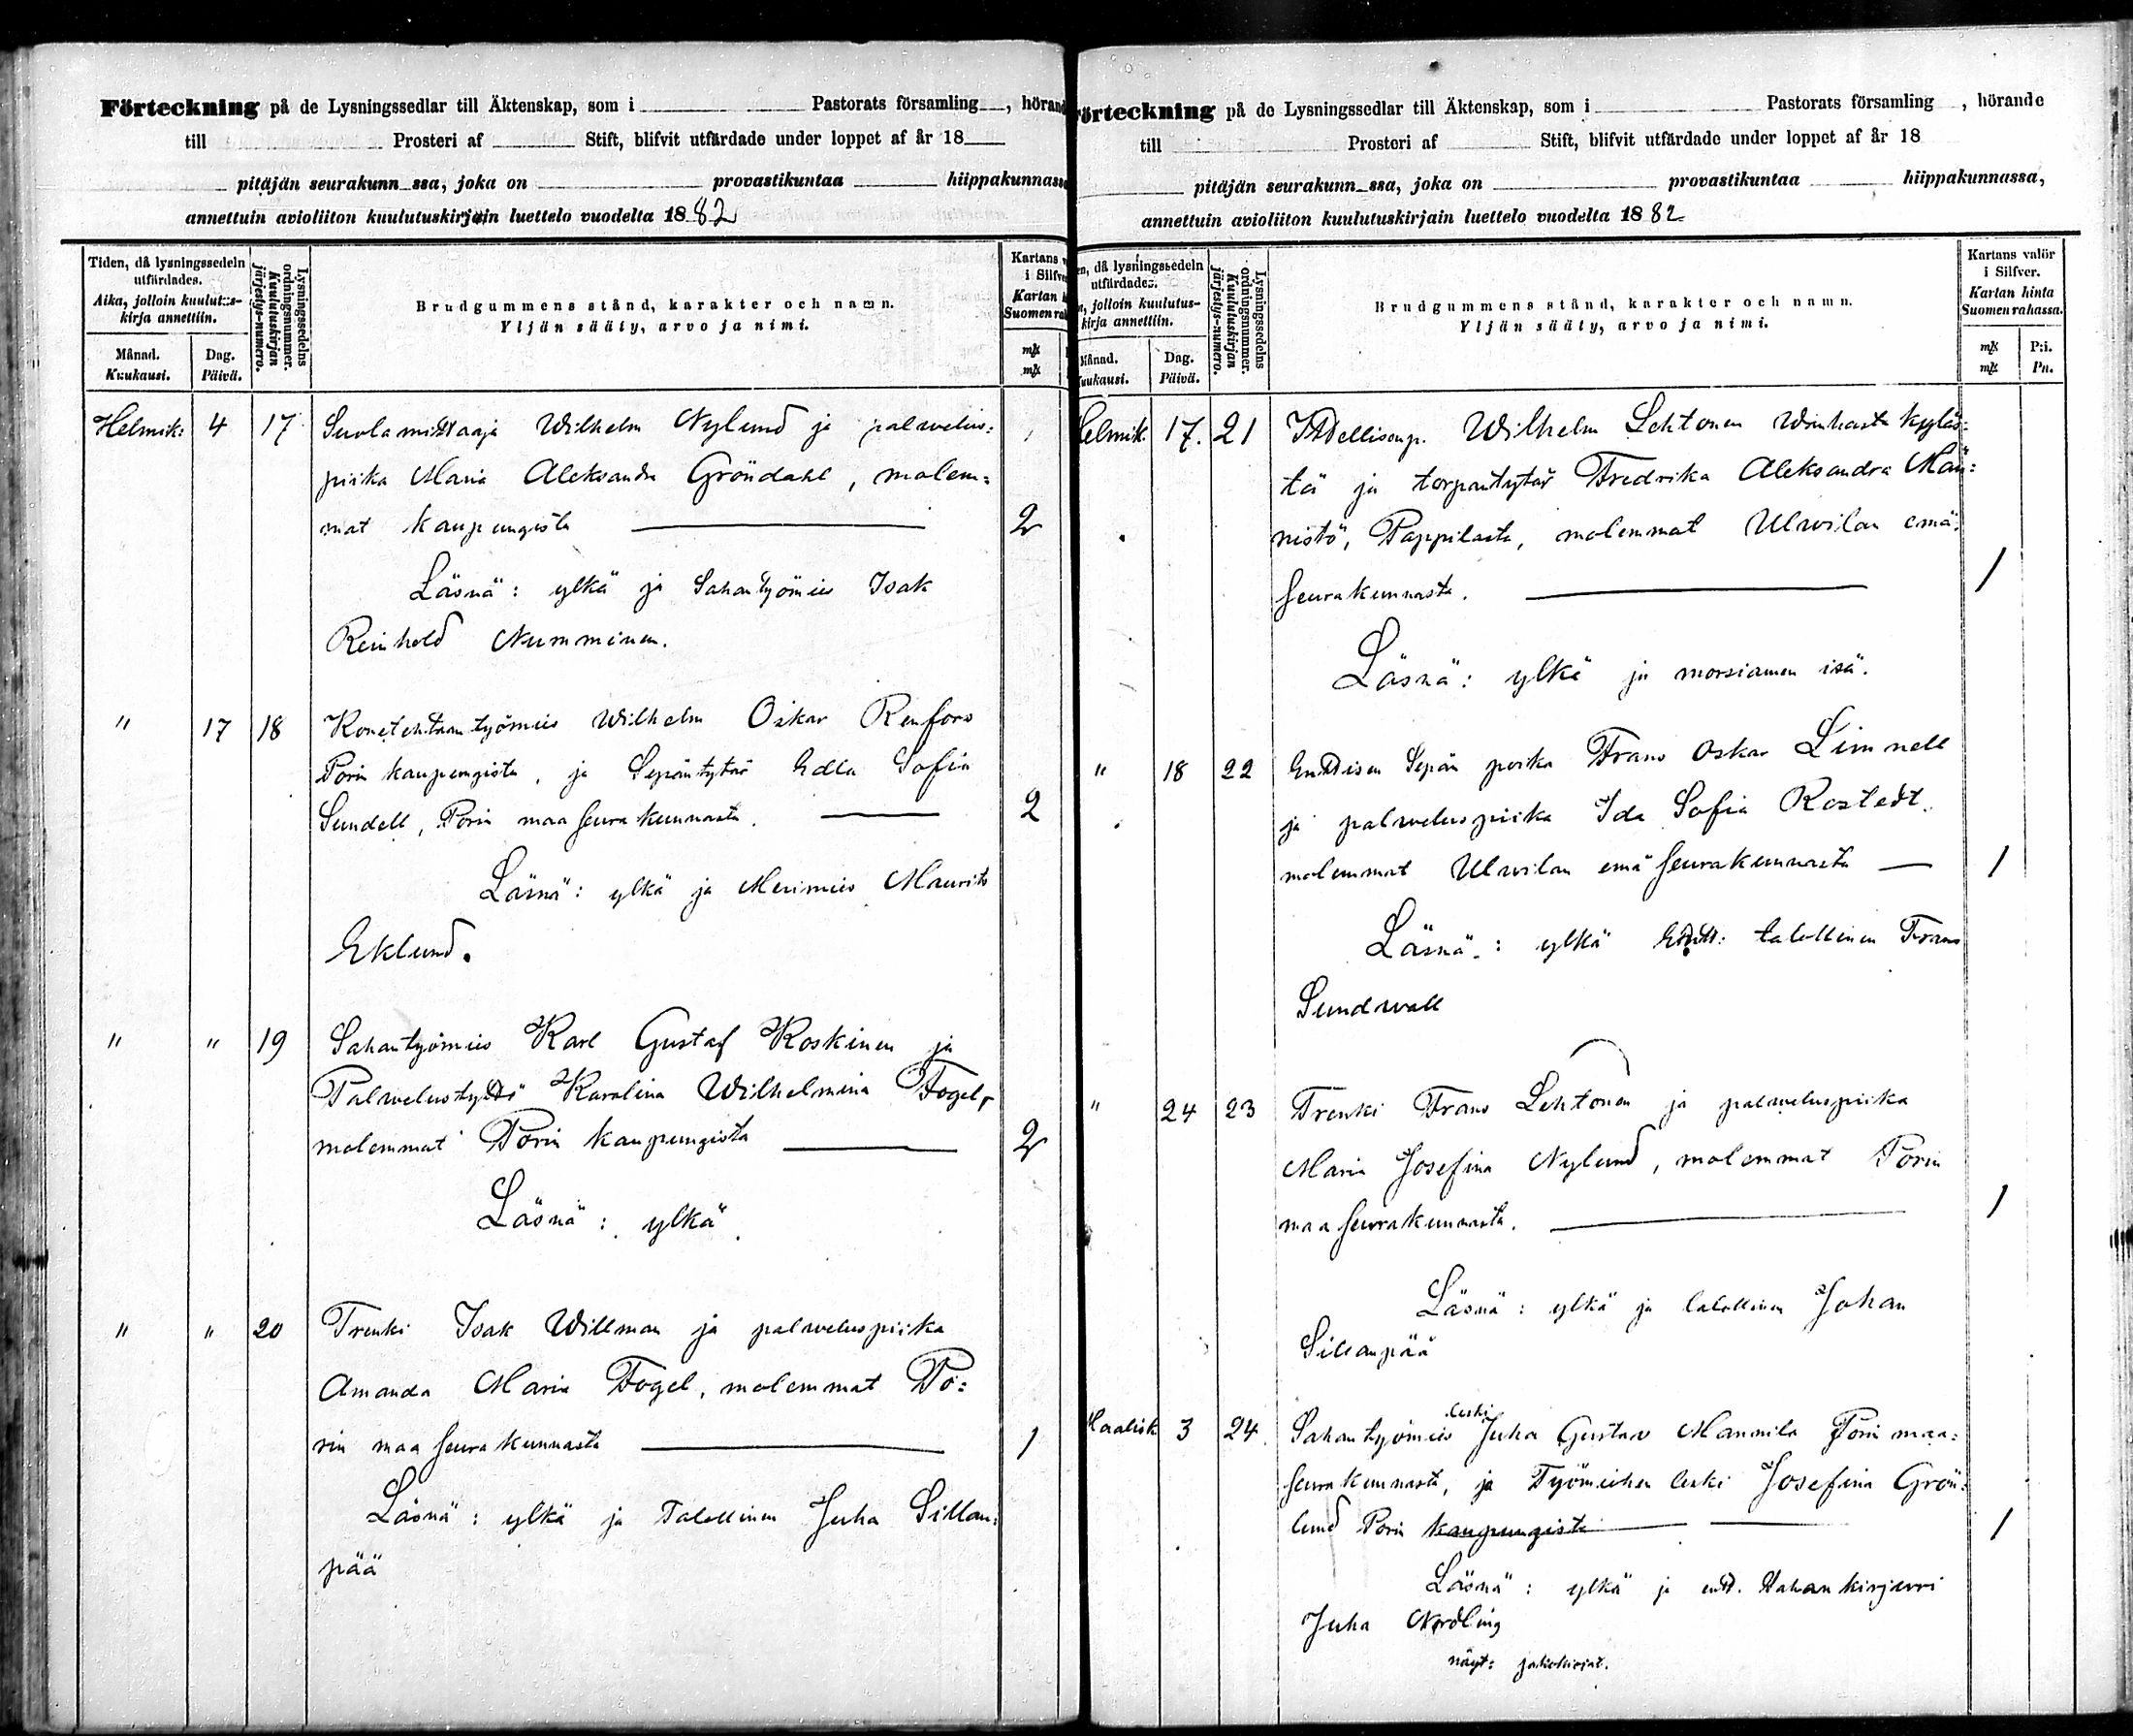 Förteckning på de Lysningssedlar till Äktenskap, som i Pastorats församling , hörand
till Prosteri af Stift, blifvit utfärdade under loppet af år 18
pitäjän seurakunn ssa, joka on provastikuntaa hiippakunnass
annettuin avioliiton kuulutuskirjain luettelo vuodelta 1882
Tiden, då lysningssedeln
utfärdades.
Aika, jolloin kuulutus-
kirja annettiin.
Månad.
Kuukausi.
Dag.
Päivä.
Lysningssedelns
ordningsnummer.
Kuulutuskirjan
järjestys-numero.
Brudgummens stånd, karakter och namn.
Yljän sääty, arvo ja nimi.
Kartans v
i Silfve
Kartan h
Suomen ra
m/k
m/k
Helmik: 4 17 Suolamittaaja Wilhelm Nylund ja palvelus:
piika Maria Aleksandra Gröndahl, molem:
mat kaupungista 2
Läsnä: ylkä ja Sahantyömies Isak
Reinhold Numminen.
" 17 18 Konetehtaan työmies Wilhelm Oskar Renfors
Porin kaupungista, ja Sepäntytär Edla Sofia
Sundell, Porin maaseurakunnasta. 2
Läsnä: ylkä ja Merimies Maurits
Eklund.
" " 19 Sahantyömies Karl Gustaf Koskinen ja
Palvelustyttö Karolina Wilhelmina Fogel,
molemmat Porin kaupungista 2
Läsnä: ylkä.
" " 20 Trenki Isak Willman ja palveluspiika
Amanda Maria Fogel, molemmat Po:
rin maaseurakunnasta 1
Läsnä: ylkä ja Talollinen Juha Sillan:
pää
örteckning på de Lysningssedlar till Äktenskap, som i Pastorats församling , hörande
till Prosteri af Stift, blifvit utfärdade under loppet af år 18
pitäjän seurakunn ssa, joka on provastikuntaa hiippakunnassa,
annettuin avioliiton kuulutuskirjain luettelo vuodelta 1882
en, då lysningssedeln
utfärdades.
a, jolloin kuulutus-
kirja annettiin.
Månad.
uukausi.
Dag.
Päivä.
Lysningssedelns
ordningsnummer.
Kuulutuskirjan
järjestys-numero.
Brudgummens stånd, karakter och namn.
Yljän sääty, arvo ja nimi.
Kartans valör
i Silfver.
Kartan hinta
Suomen rahassa.
m/k P:i.
m/k Pn.
Helmik. 17. 21 Itsellisenp. Wilhelm Lehtonen Winhasta kyläs:
tä ja torpantytär Fredrika Aleksandra Män:
nistö, Pappilasta, molemmat Ulvilan emä:
seurakunnasta. 1
Läsnä: ylkä ja morsiamen isä.
" 18 22 Entisen Sepän poika Frans Oskar Limnell
ja palveluspiika Ida Sofia Rostedt.
molemmat Ulvilan emäseurakunnasta 1
Läsnä: ylkä talollinen Frans
Sundwall
" 24 23 Trenki Frans Lehtonen ja palveluspiika
Maria Josefina Nylund, molemmat Porin
maaseurakunnasta. 1
Läsnä: ylkä ja talollinen Johan
Sillanpää
leski
Maalisk 3 24 Sahantyömies Juha Gustav Mannila Porin maa:
seurakunnasta, ja Työmiehen leski Josefina Grön:
lund Porin kaupungista 1
Läsnä: ylkä ja ent. Sahankirjuri
Juha Nordling
näyt: jakokirjat.